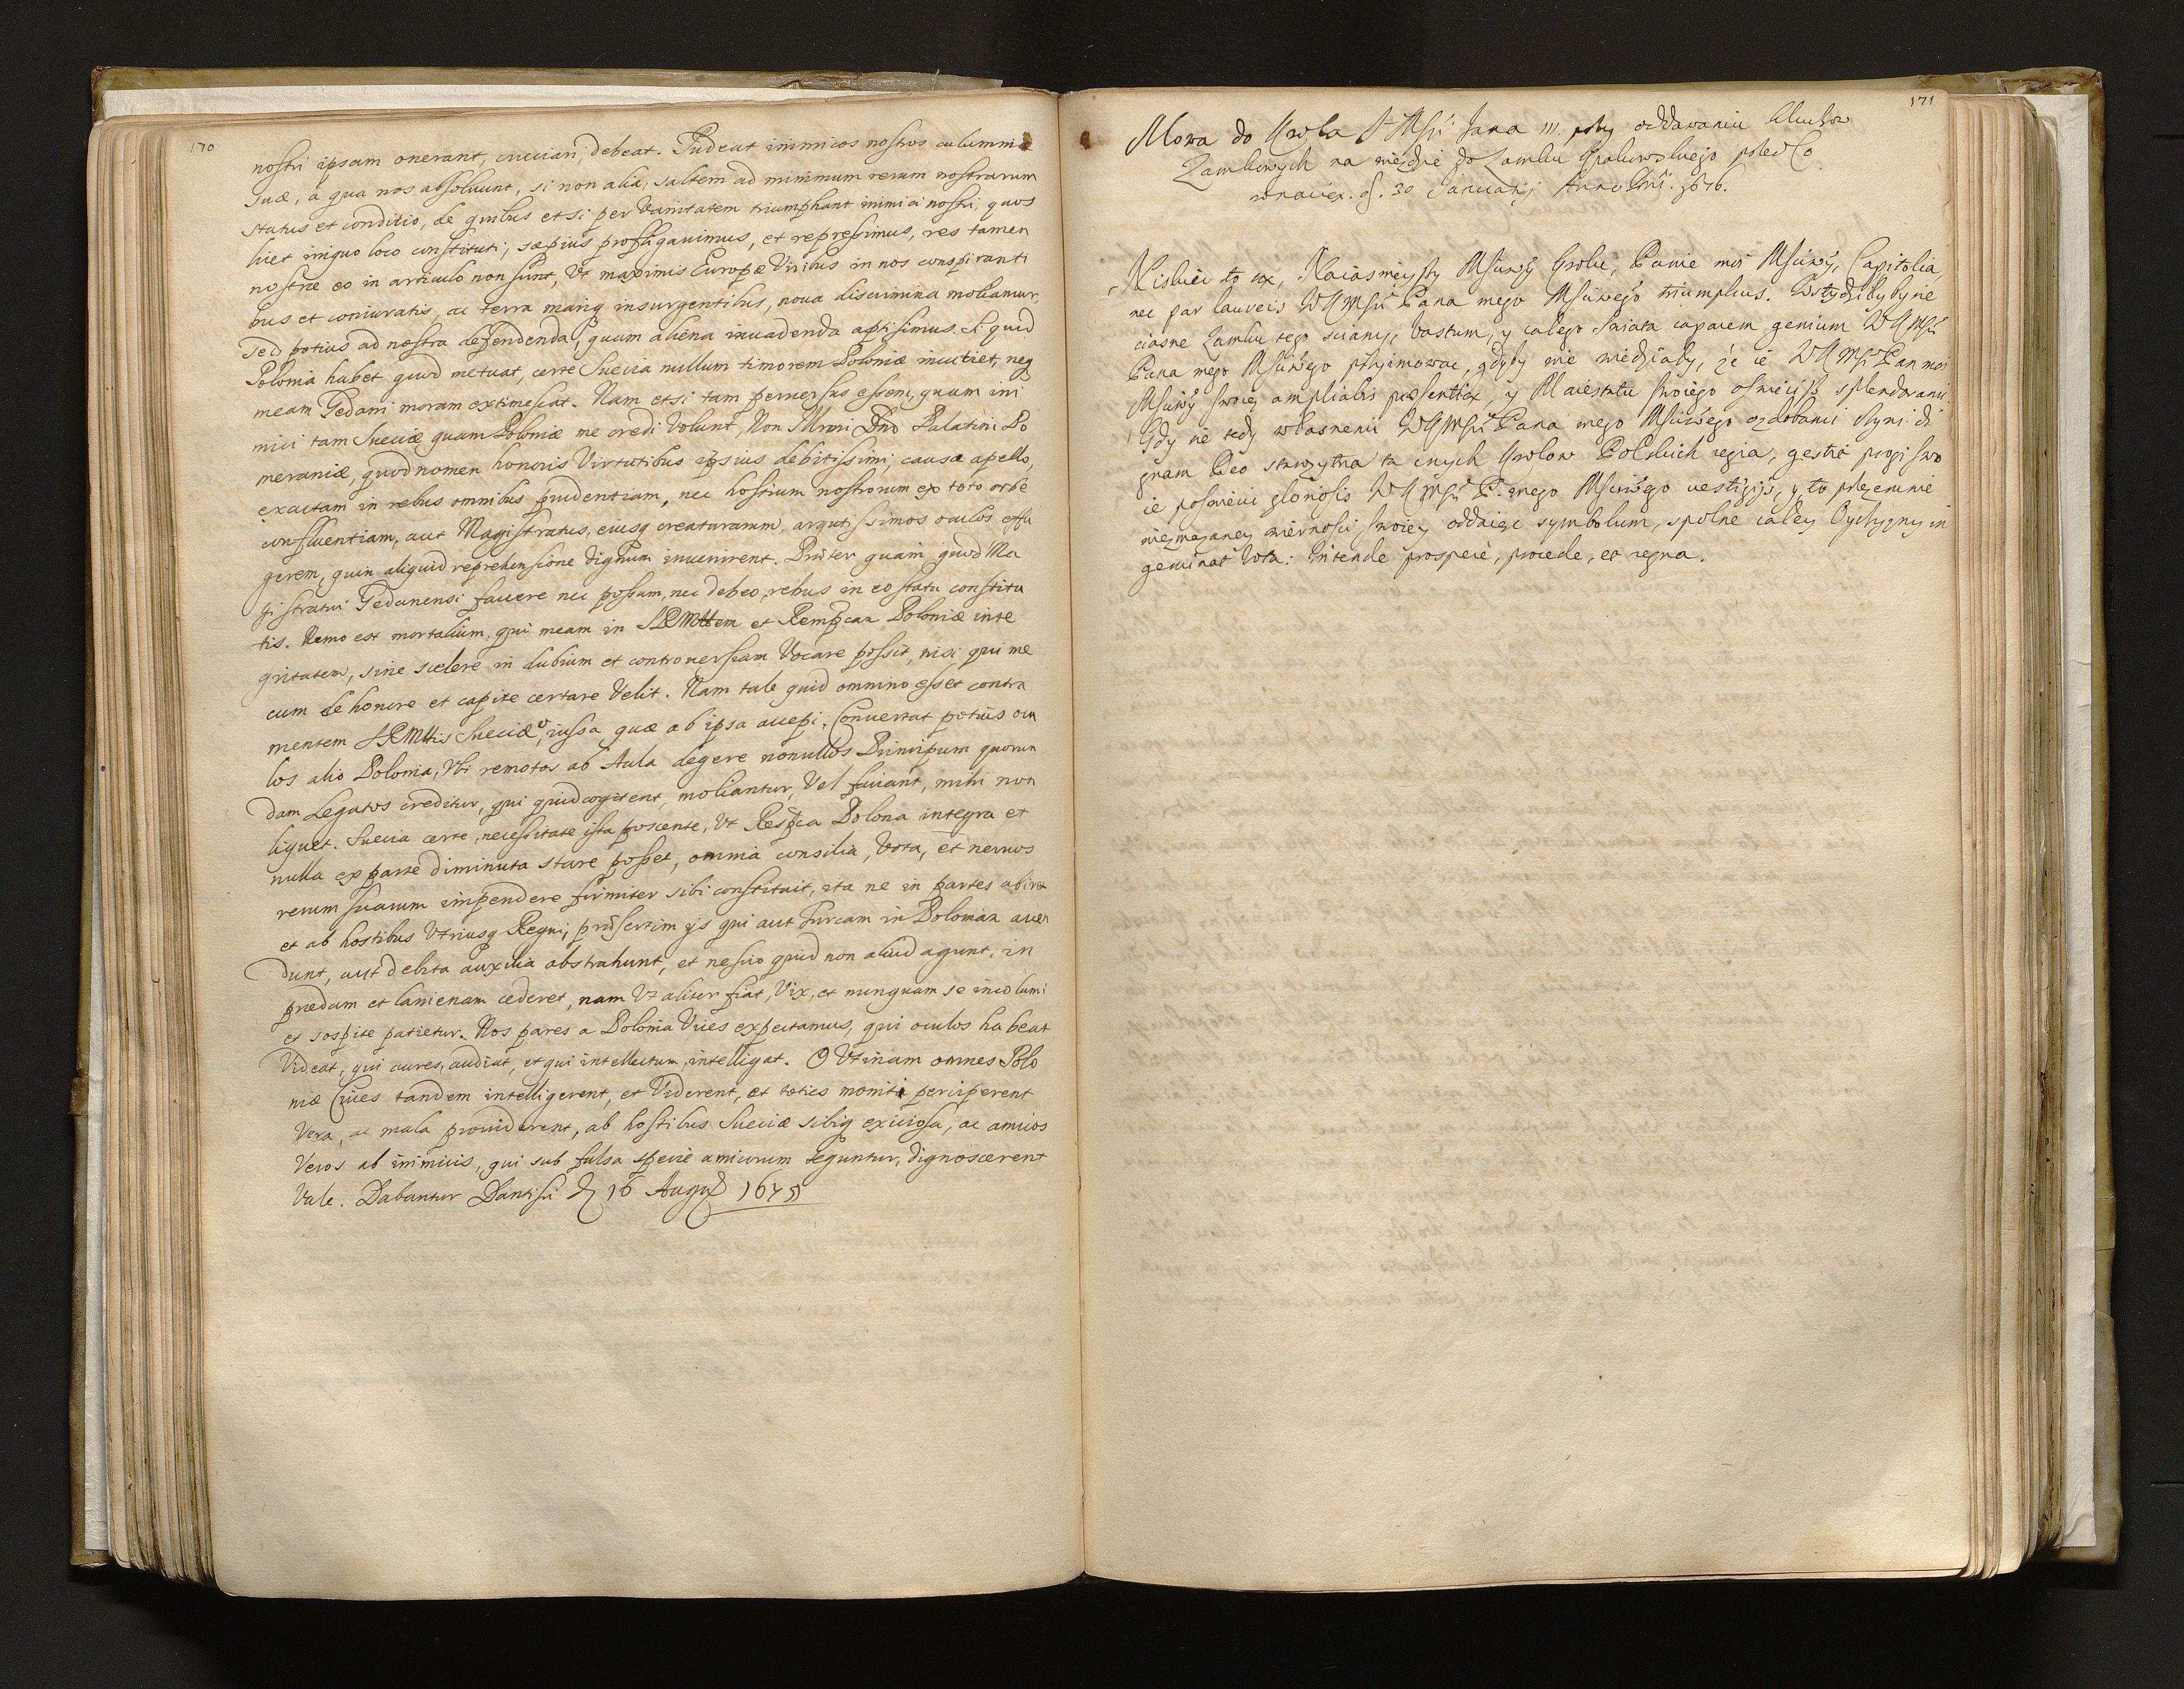 170
nostri ipsam onerant, cruciari, debeat. Pudeat inimicos nostros calumniæ
suæ, a qua nos absoluunt, si non alia, saltem ad minimum rerum nostrarum
status et conditio, de quibus etsi per Vanitatem triumphant inimici nostri, quos
licet iniquo loco constituti, sæpius profligauimus, et repressimus, res tamen
nostræ eo in articulo non sunt, Vt maximis Europæ Viribus in nos conspiranti
bus et coniuratis, ac terra mariq insurgentibus, noua discrimina moliamur,
sed potius ad nostra defendenda, quam aliena inuadenda aptissimus. Si quid
Polonia habet quod metuat, certe Suecia nullum timorem Poloniæ incutiet, neq
meam Gedani moram extimescat. Nam etsi tam peruersus essem, quam ini
mici tam Sueciæ quam Poloniæ me credi Volunt, Non Dno Palatini Po
meraniæ, quod nomen honoris Virtutibus ipsius debitissimi, causa apello,
exactam in rebus omnibus prudentiam, nec hostium nostrorum ex toto orbe
confluentiam, aut Magistratus, eiusq creaturarum, argutissimos oculos effu
gerem, quin aliquid reprehensione dignum inuenirent. Præter quam quod Ma
gistratui Gedanensi fauere nec possum, nec debeo, rebus in eo statu constitu
tis. Nemo est mortalium, qui meam in SRMttem et Rempcam Poloniæ inte
gritatem, sine scelere in dubium et controuersiam Vocare possit, nisi qui me
cum de honore et capite certare Velit. Nam tale quid omnino esset contra
mentem SRMttis Sueciæ, iussa quæ ab ipsa accepi. Conuertat potius ocu
los alio Polonia, Vbi remotos ab Aula degere nonullos Principum quorun
dam Legatos creditur, qui quid cogitent, moliantur, Vel faciant, mihi non
liquet. Suecia certe, necessitate ista poscente, Vt Respca Polona integra et
nulla ex parte diminuta stare posset, omnia consilia, Vota, et neruos
rerum suarum impendere firmiter sibi constituit, ita ne in partes abiret
et ab hostibus Vtriusq Regni, præsertim ijs qui aut Turcam in Poloniam accen
dunt, aut debita auxilia abstrahunt, et nescio quid non aliud agunt, in
prædam et lanienam cederet, nam Vt aliter fiat, Vix, et nunquam se incolumi
et sospite patietur. Nos pares a Polonia Vices expectamus, qui oculos habeat
Videat, qui aures, audiat, et qui intellectum, intelligat. O Vtinam omnes Polo
niæ Ciues tandem intelligerent, et Viderent, et toties moniti perciperent
Vera, ac mala prouiderent, ab hostibus Sueciæ sibiq exitiosa, ac amicos
Veros ab inimicis, qui sub falsa specie amicorum teguntur, dignoscerent
Vale. Dabantur Dantisci d 16 Augus 1675
171
Mowa do Krola Jana III. przy oddawaniu Kluczow
Zamkowych na wieździe do Zamku Krakowskiego przed Co
ronacią. d. 30 Januarij Anno Dni. 1676.
Niskieć to są, Naiasnieyszy Msciwy Krolu, Panie moj Msciwy, Capitolia,
nec par laureis WKMsci Pana mego Msciwego triumphus. Wstydziłyby się
ciasne Zamku tego sciany, Vastum, y całego swiata capacem genium WKMsci
Pana mego Msciwego przyimowac, gdyby nie wiedziały, że ie WKMsc Pan moi
Msciwy swoią ampliabis præsentia, y Maiestatu swoiego oswiecisz splendorami.
Gdy się tedy własnemi WKMsci Pana mego Msciwego ozdobami czyni di
gnam Deo starozytna ta inych Krolow Polskich regia, gestit progi swo
ie poswiecic gloriosis WKMsci P. mego Msciwego uestigijs, y to przezemnie
niezmazaney wiernosci swoiey oddaiąc symbolum, spolne całey Oyczyzny in
geminat Vota: Intende prospere, procede, et regna.